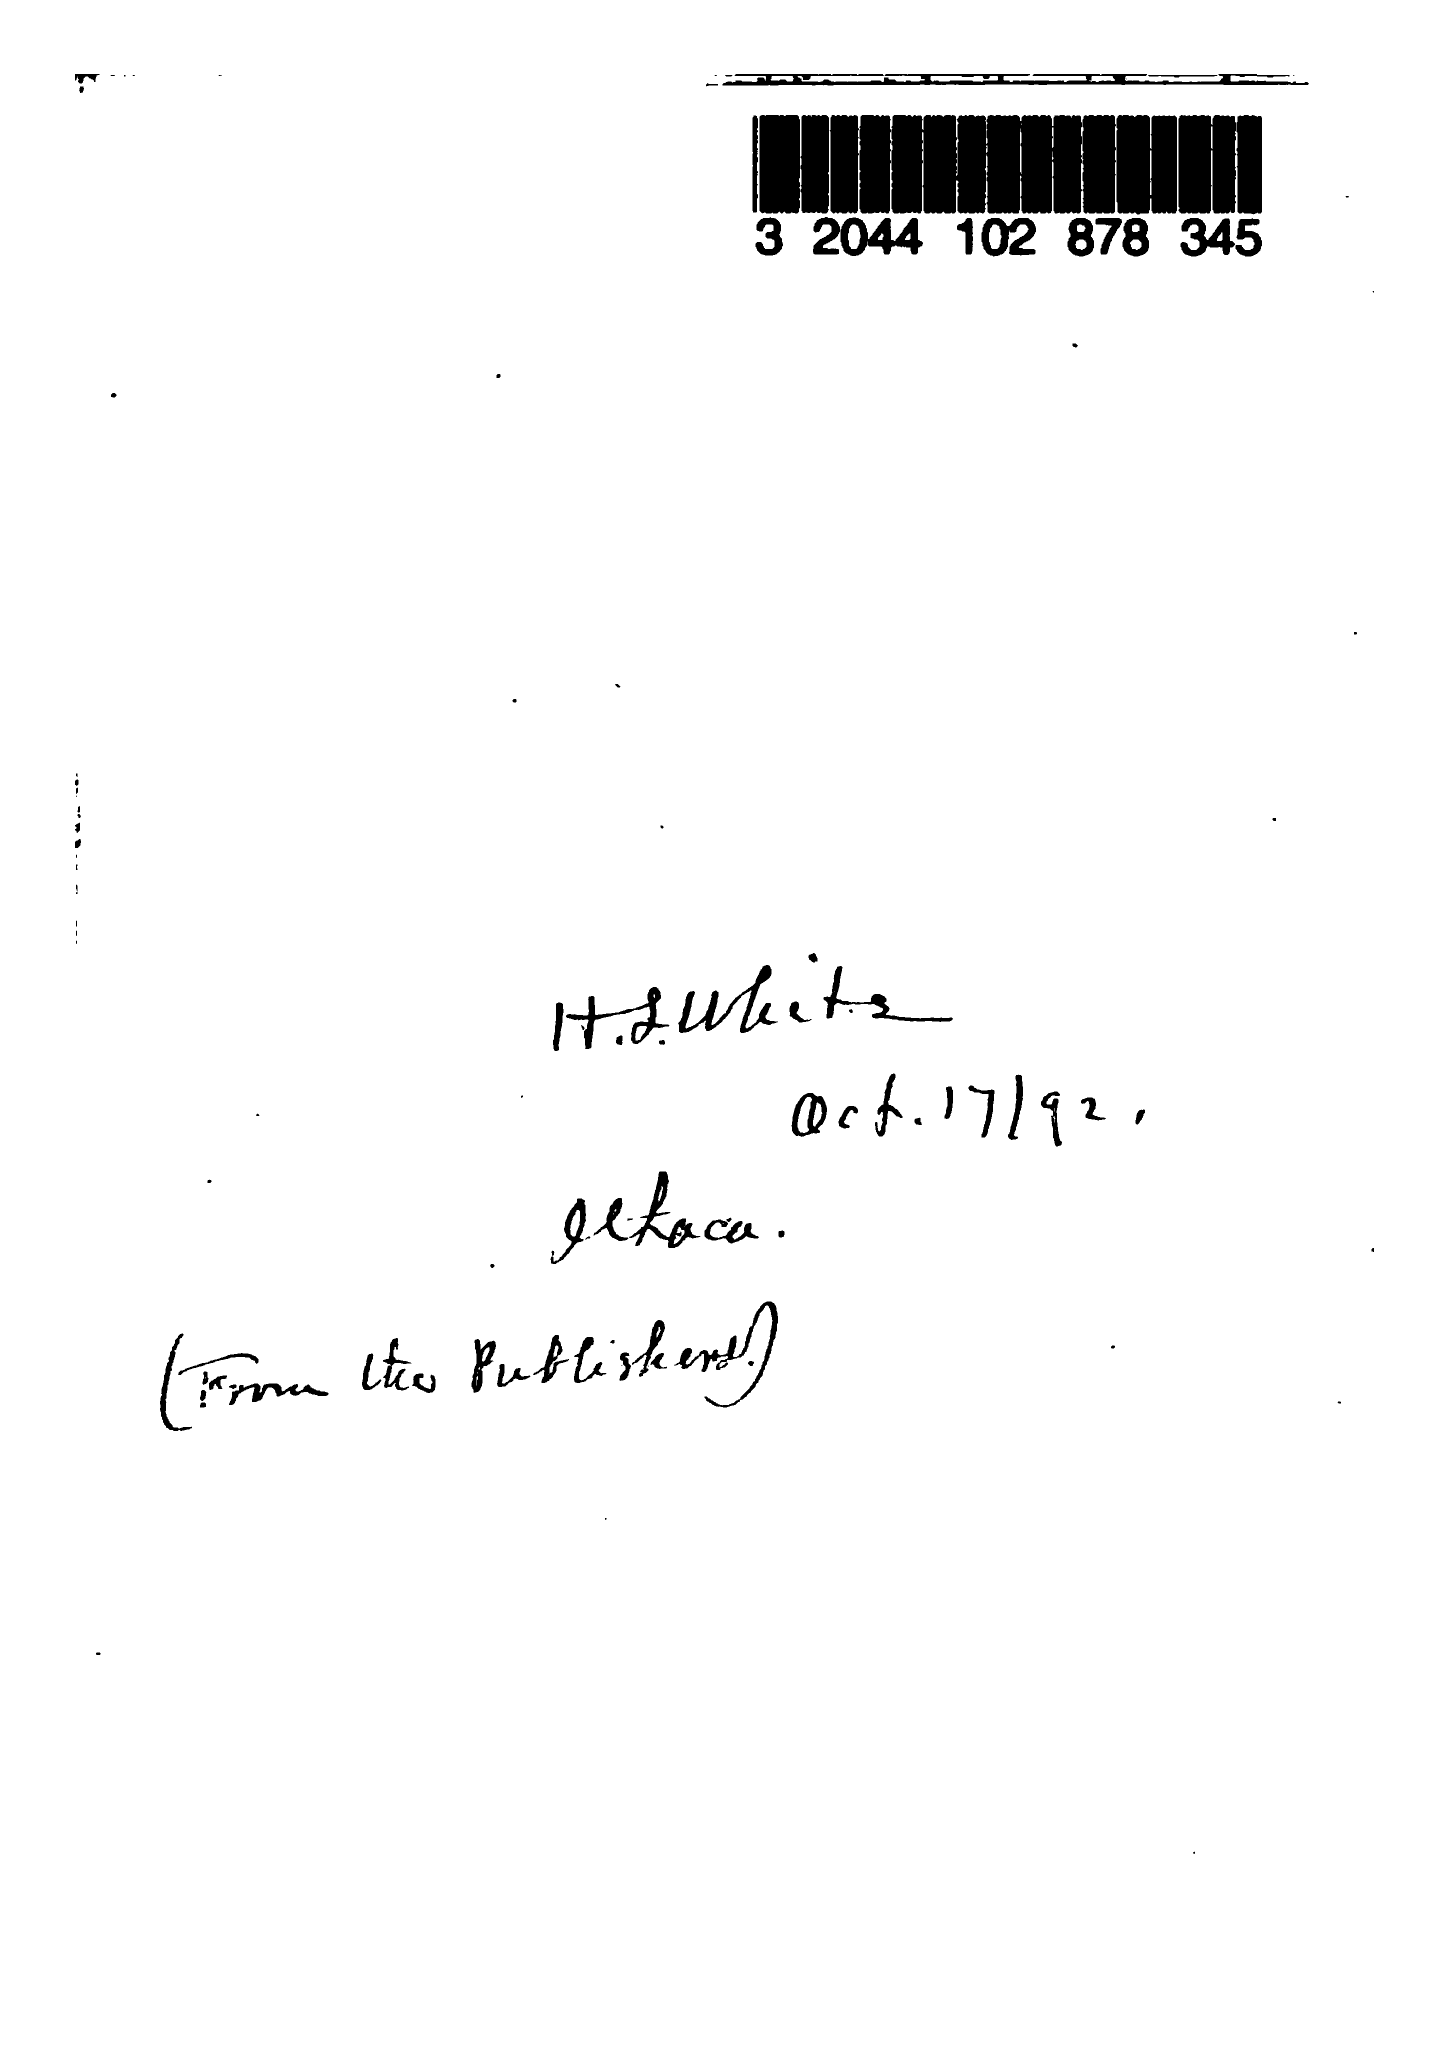 3 2044 102 878 345
H.S. White
Oct. 17/92.
Ithaca.
(From the Publishers.)